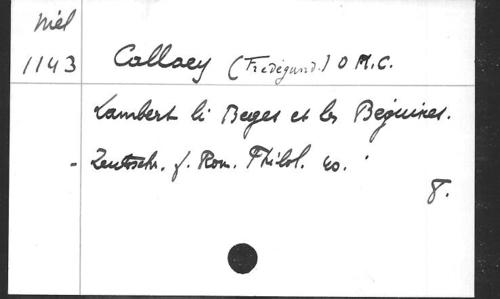 Miel
1143 Callaey (Frédégand.) O M.C.
Lambert li Beges et les Béguines.
- Zeitschr. f. Rom. Philol. 
8.